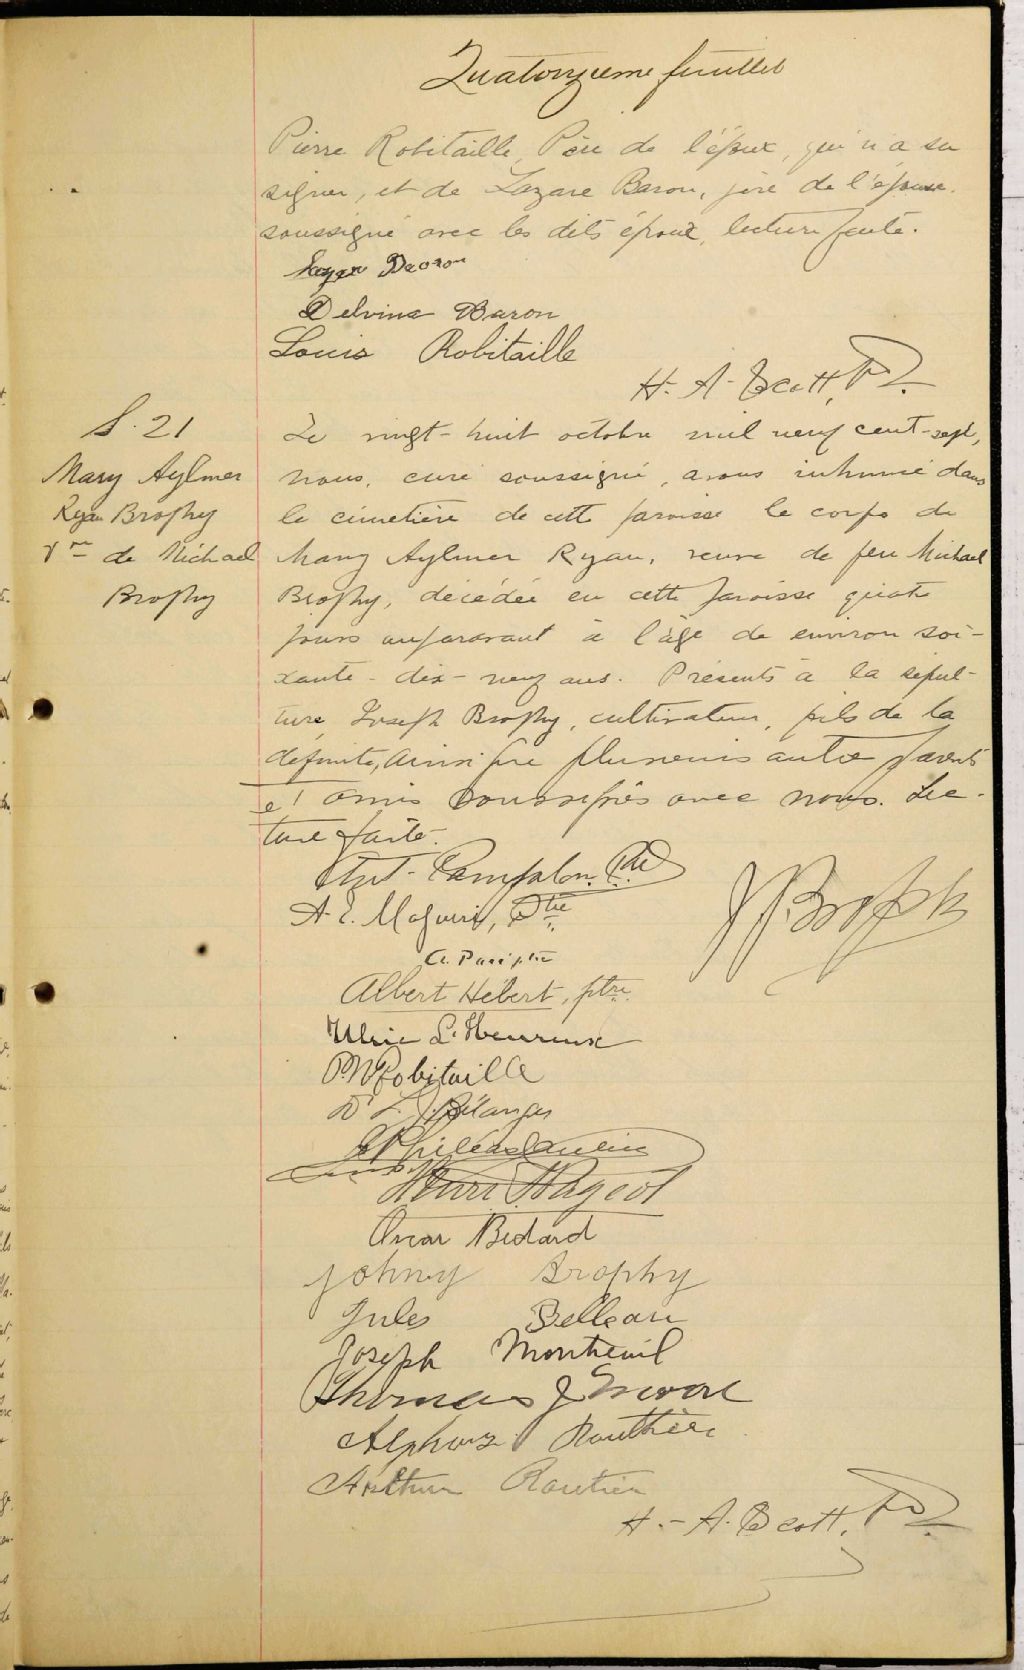 Quatorzieme feuillet
Pierre Robitaille, Père de l'époux, qui n'a su
signer, et de Lazare Baron, père de l'épouse.
soussigné avec les dits époux, lecture faite.
Baron
Delvina Baron
Louis Robitaille
H.-A. Scott, Ptr.
S. 21
Mary Aylmer
Ryan Brophy
Vve de Michael
Brophy
Le vingt-huit octobre mil neuf cent-sept,
nous, curé soussigné, avons inhumé dans
le cimetière de cette paroisse le corps de
Mary Aylmer Ryan, veuve de feu Michael
Brophy, décédée en cette paroisse quatre
jours auparavant à l'âge de environ soi-
xante-dix-neuf ans. Présents à la sépul-
ture Joseph Brophy, cultivateur, fils de la
défunte, ainsi que plusieurs autres parents
et amis soussignés avec nous. Lec-
ture faite.
Ant. Camp Ptre
J Brophy
A. E. Maguire, Ptre
A. ptre
Albert Hébert, ptre
Ulric L'Heureux
Robitaille
Dr L. J. Bélanger
Henri Pageot
Oscar Bedard
Johney Brophy
Jules Belleau
Joseph Montreuil
Thomas J
Alphonse Routhier
Arthur Routier
H.-A. Scott, Ptr.